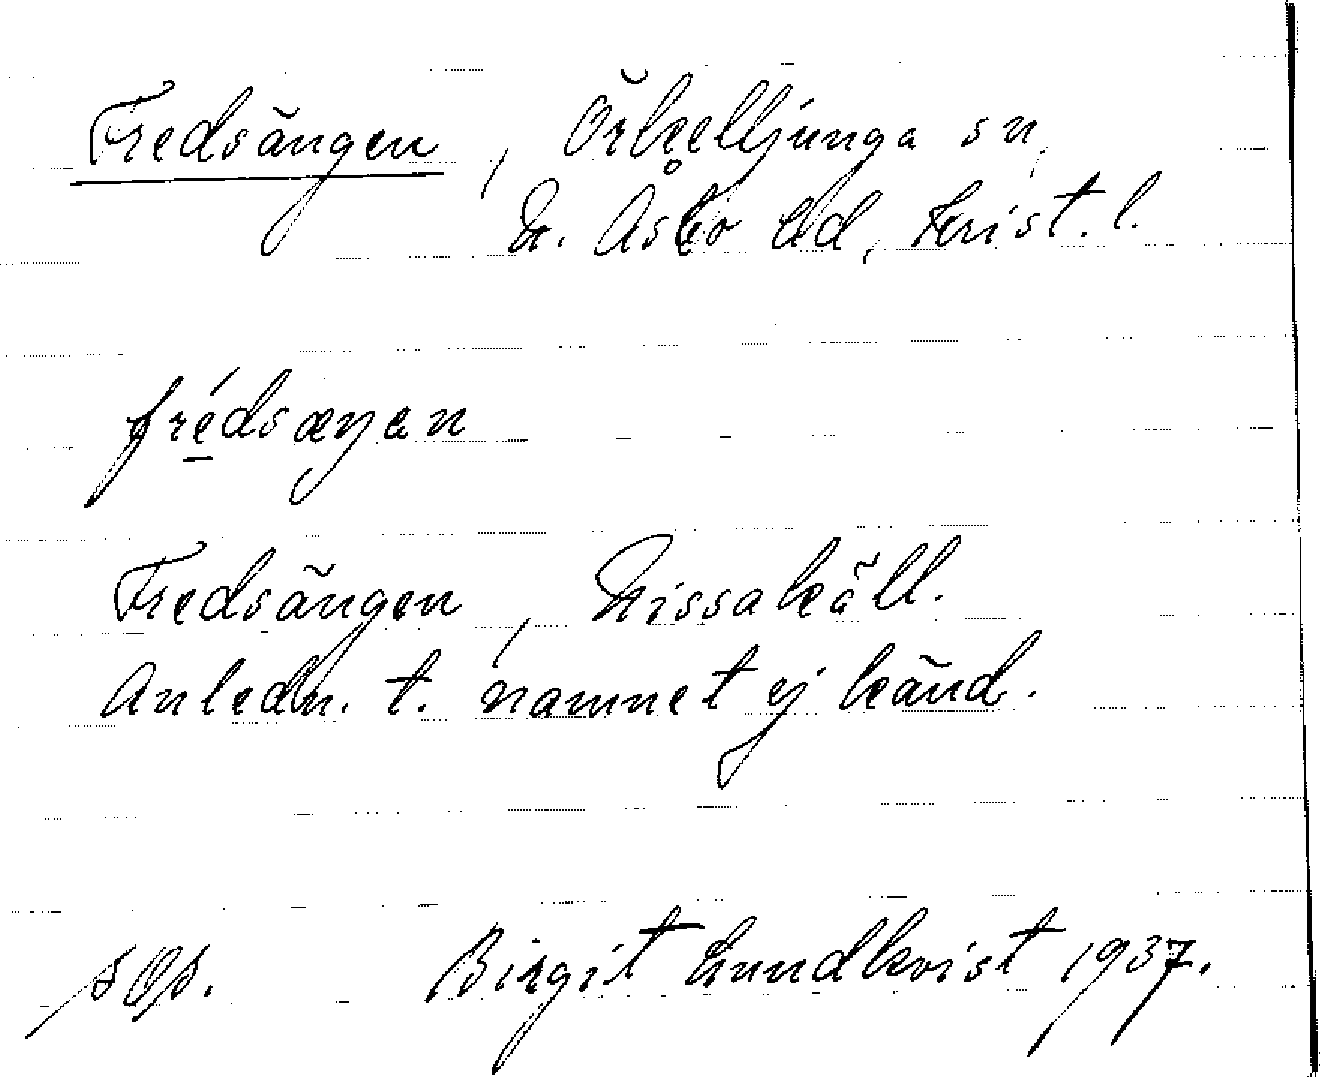 Fredsängen, Örkelljunga sn,
N. Åsbo hd, Krist. l.
frédsæŋen
Fredsängen, Nissakäll.
Anledn. t. namnet ej känd.
Birgit Lundkvist 1937.